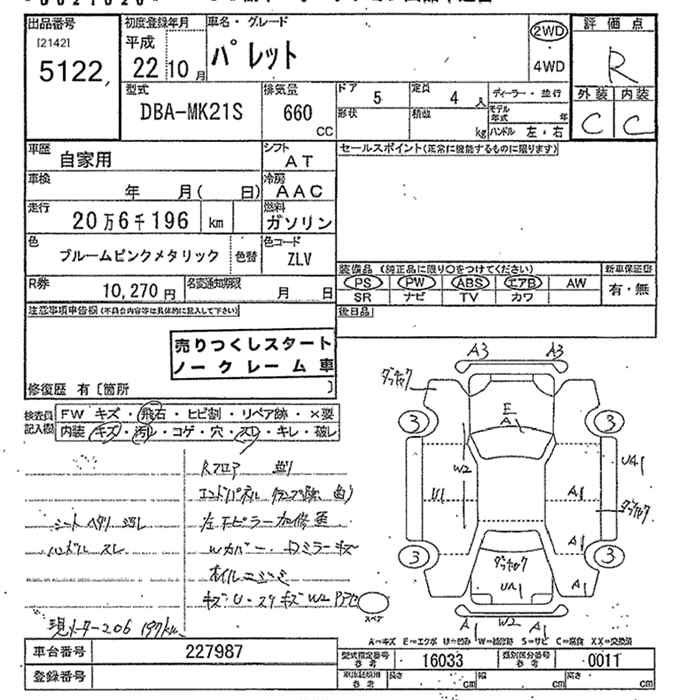 出品番号 初度登録年月 車名・グレード 2WD 評価点
[2142] 平成 パレット ・ R
5122 22 10月 4WD 外装 内装
型式 排気量 ドア 5 定員 4人 ディーラー・並行 C C
DBA-MK21S 660 形状 積数 モデル年式 年
CC kg ハンドル 左・右
車歴 自家用 シフト AT セールスポイント(正常に機能するものに限ります)
車検 年 月( 日) 冷房 AAC
走行 20万6千196 km 燃料 ガソリン
色 ブルームピンクメタリック 色替 色コード ZLV
装備品 (純正品に限り○をつけてください) 新車保証書
R券 10,270円 名変通知期限 月 日 PS PW ABS エアB AW 有・無
SR ナビ TV カワ
注意事項申告欄(不具合内容等は具体的に記入して下さい) 後日品
売りつくしスタート
ノークレーム車
修復歴 有〔箇所 〕
A3 A3
検査員記入欄 FW キズ・飛石・ヒビ割・リペア跡・×要
内装 キズ・汚レ・コゲ・穴・スレ・キレ・破レ
E
A1
3 3
W2 U1 A1 UA1
Rフロア 曲り
シート ヘタリ 汚レ
ハンドル スレ
Wカバー・Dミラーキズ
オイルニジミ
A1
3 3
UA1 A1
スペア
A1 W2 A1
現メーター206197km
A=キズ E=エクボ U=凹み W=補修跡 S=サビ C=腐食 XX=交換済
車台番号 227987 型式指定番号 参考 16033 類別区分番号 参考 0011
登録番号 長さ cm 幅 cm 高さ cm